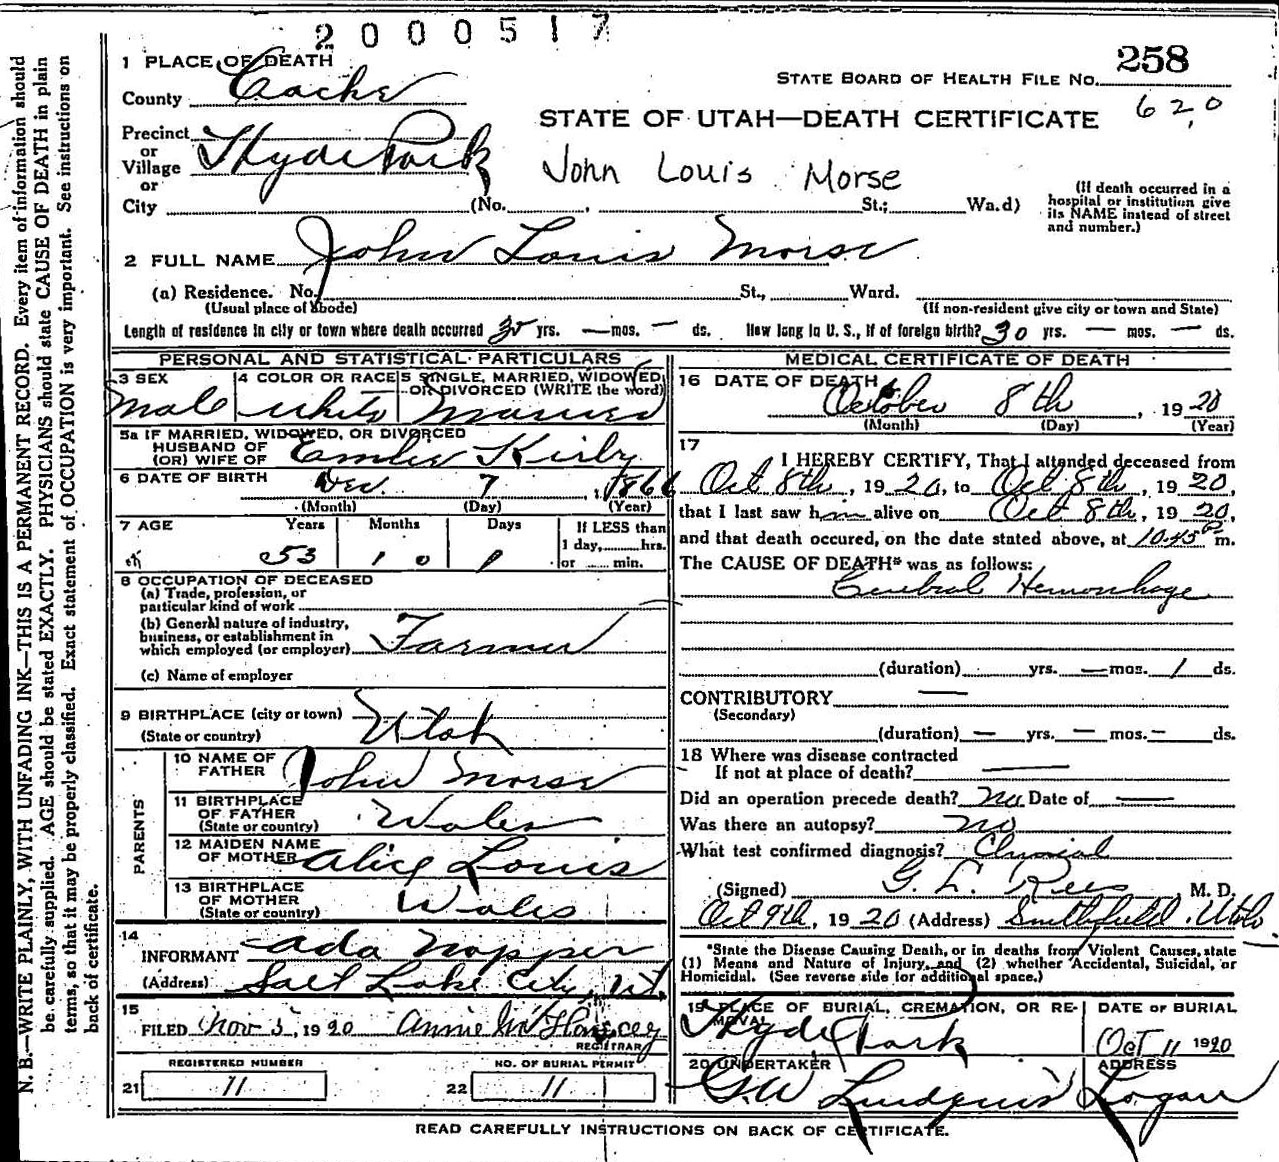 2000517
1 PLACE OF DEATH
County Cache
STATE BOARD OF HEALTH FILE NO. 258
620
STATE OF UTAH—DEATH CERTIFICATE
Precinct
or
Village Hyde Park
or
John Louis Morse
City (No. , St.; Wa.d)
(If death occurred in a hospital or institution give its NAME instead of street and number.)
2 FULL NAME John Louis Morse
(a) Residence. No. St., Ward.
(Usual place of abode) (If non-resident give city or town and State)
Length of residence in city or town where death occurred 30 yrs. — mos. — ds. How long in U. S., if of foreign birth? 30 yrs. — mos. — ds.
PERSONAL AND STATISTICAL PARTICULARS
3 SEX Male
4 COLOR OR RACE White
5 SINGLE, MARRIED, WIDOWED, OR DIVORCED (WRITE the word) Married
5a IF MARRIED, WIDOWED, OR DIVORCED
HUSBAND OF
(OR) WIFE OF Kirby
6 DATE OF BIRTH Dec. 7, 1866
(Month) (Day) (Year)
7 AGE Years Months Days If LESS than
53 10 1 1 day, hrs.
or min.
8 OCCUPATION OF DECEASED
(a) Trade, profession, or
particular kind of work
(b) General nature of industry,
business, or establishment in
which employed (or employer) Farmer
(c) Name of employer
9 BIRTHPLACE (city or town)
(State or country) Utah
PARENTS
10 NAME OF FATHER John Morse
11 BIRTHPLACE OF FATHER
(State or country) Wales
12 MAIDEN NAME OF MOTHER Alice Louis
13 BIRTHPLACE OF MOTHER
(State or country) Wales
14
INFORMANT Ada Napper
(Address) Salt Lake City, Ut.
15
FILED Nov 5, 1920 Annie
REGISTRAR
REGISTERED NUMBER
21 11
NO. OF BURIAL PERMIT
22 11
MEDICAL CERTIFICATE OF DEATH
16 DATE OF DEATH
October 8th, 1920
(Month) (Day) (Year)
17
I HEREBY CERTIFY, That I attended deceased from
Oct 8th, 1920, to Oct 8th, 1920,
that I last saw him alive on Oct 8th, 1920,
and that death occured, on the date stated above, at 10.45 P m.
The CAUSE OF DEATH* was as follows:
Cerebral Hemorrhage
(duration) yrs. — mos. 1 ds.
CONTRIBUTORY —
(Secondary)
(duration) — yrs. — mos. — ds.
18 Where was disease contracted
If not at place of death? —
Did an operation precede death? no Date of —
Was there an autopsy? no
What test confirmed diagnosis? Clinical
(Signed) G. L. Rees M. D.
Oct 9th, 1920 (Address) Smithfield, Utah
*State the Disease Causing Death, or in deaths from Violent Causes, state
(1) Means and Nature of Injury, and (2) whether Accidental, Suicidal, or
Homicidal. (See reverse side for additional space.)
19 PLACE OF BURIAL, CREMATION, OR REMOVAL Hyde Park
DATE OF BURIAL
Oct 11 1920
20 UNDERTAKER G.W. Lindquist
ADDRESS Logan
READ CAREFULLY INSTRUCTIONS ON BACK OF CERTIFICATE.
N. B.—WRITE PLAINLY, WITH UNFADING INK—THIS IS A PERMANENT RECORD. Every item of information should
be carefully supplied. AGE should be stated EXACTLY. PHYSICIANS should state CAUSE OF DEATH in plain
terms, so that it may be properly classified. Exact statement of OCCUPATION is very important. See instructions on
back of certificate.